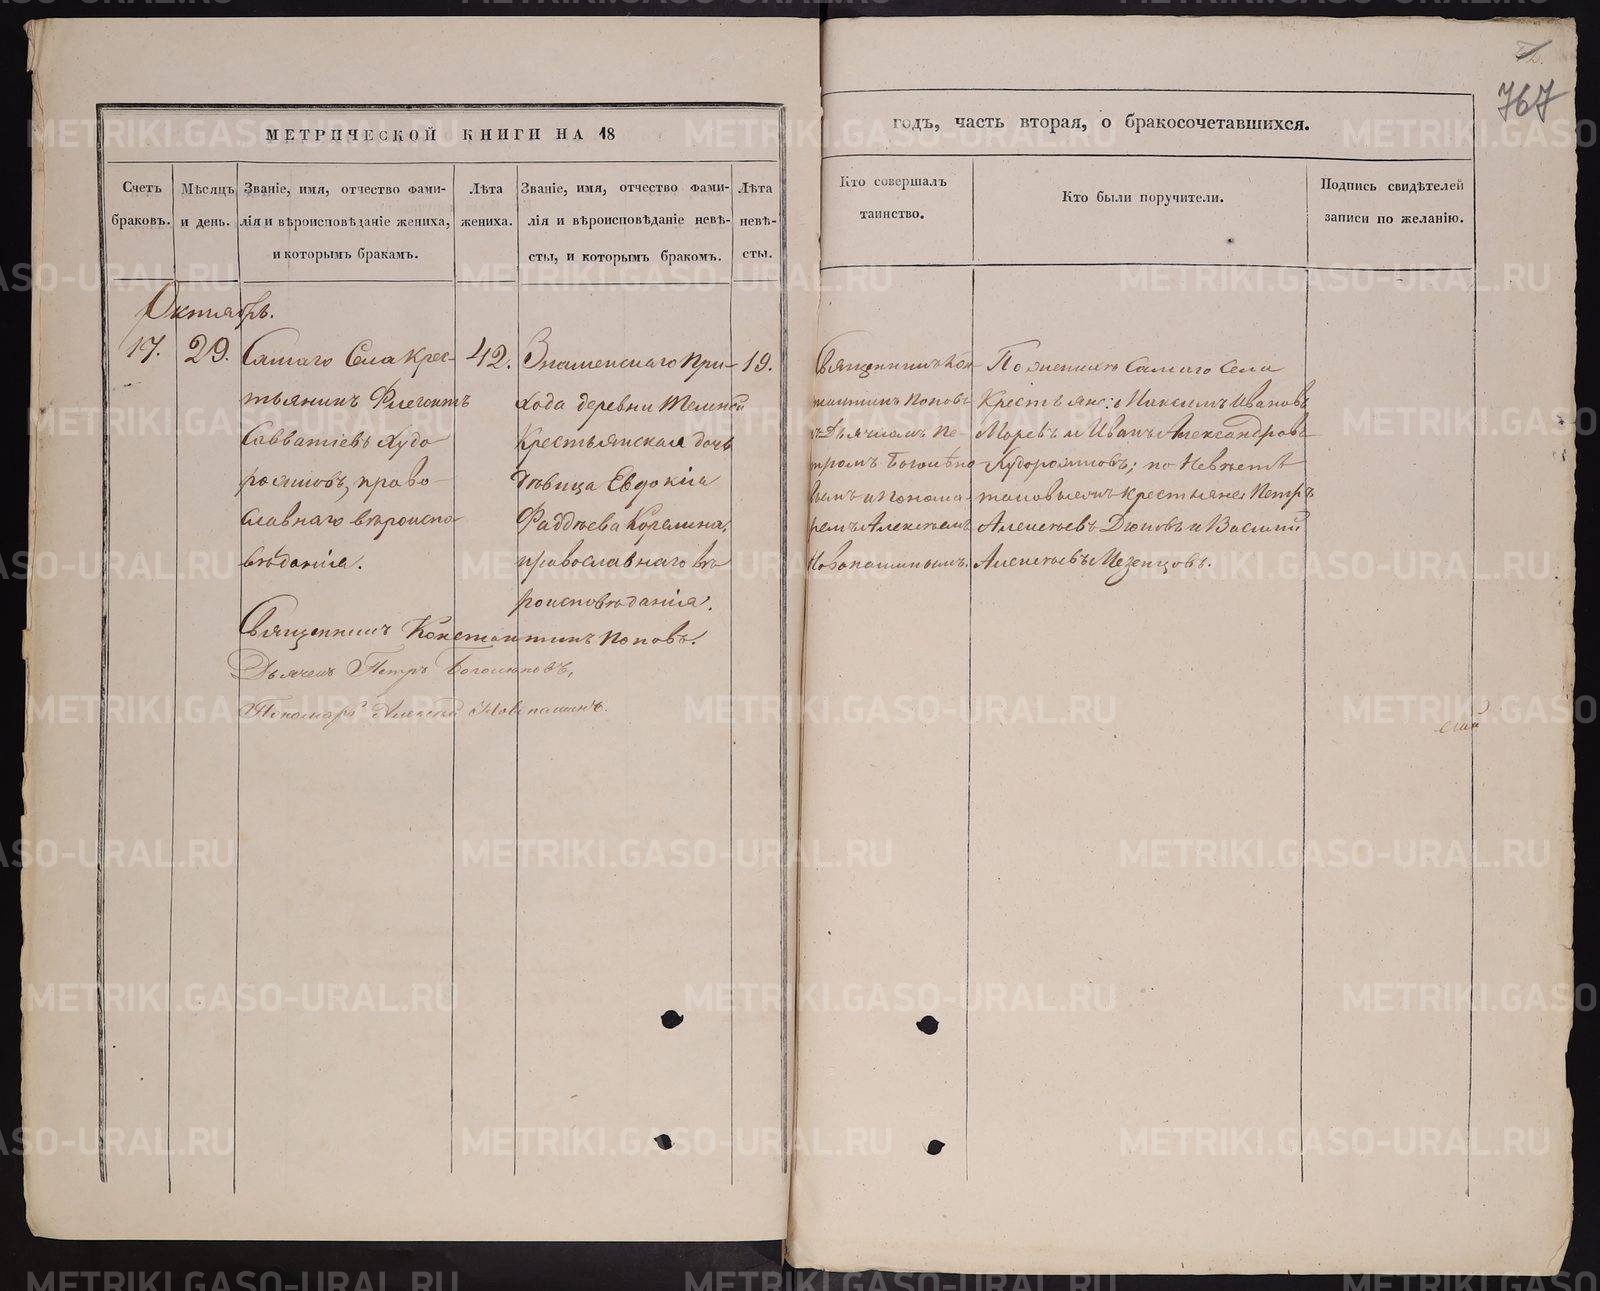 767
МЕТРИЧЕСКОЙ КНИГИ НА 18
годъ, часть вторая, о бракосочетавшихся.
Счетъ браковъ.
Мѣсяцъ и день.
Званіе, имя, отчество фами-
лія и вѣроисповѣданіе жениха,
и которымъ бракамъ.
Лѣта жениха.
Званіе, имя, отчество фами-
лія и вѣроисповѣданіе невѣ-
сты, и которымъ бракомъ.
Лѣта невѣ-
сты.
Кто совершалъ
таинство.
Кто были поручители.
Подпись свидѣтелей
записи по желанію.
Октябрь.
17.
29.
Самаго Села Крес-
тьянинъ Флегонтъ
Савватіевъ Худо
рояшовъ, право-
славнаго вѣроиспо
вѣданія.
42.
Знаменскаго При-
хода деревни
Крестьянская дочь
Дѣвица Евдокіа
Фаддѣева Корелина,
православнаго вѣ
роисповѣданія.
19.
Священникъ Кон
стантинъ Поповъ
съ Дьячкомъ Пе-
тромъ Боголѣпо
вымъ и Понома-
ремъ Алексѣемъ
Новопашинымъ.
По женихѣ Самаго Села
Крестьяне: Максимъ Ивановъ
Моревъ и Иванъ Александровъ
Худорояшовъ; по Невѣстѣ
таковыежъ крестьяне Петръ
Алексѣевъ Дюповъ и Василій
Алексѣевъ Мезенцовъ.
Священникъ Константинъ Поповъ.
Дьячекъ Петръ Боголѣповъ,
Пономарь Алексѣй Новопашинъ.
METRIKI.GASO-URAL.RU